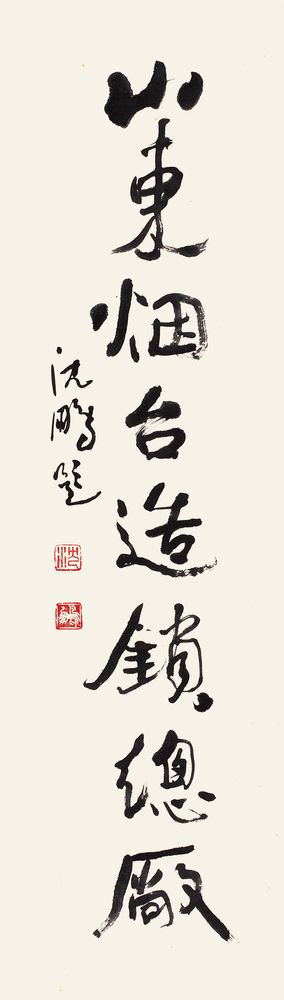 山東烟台造鎖總廠
沈鵬題